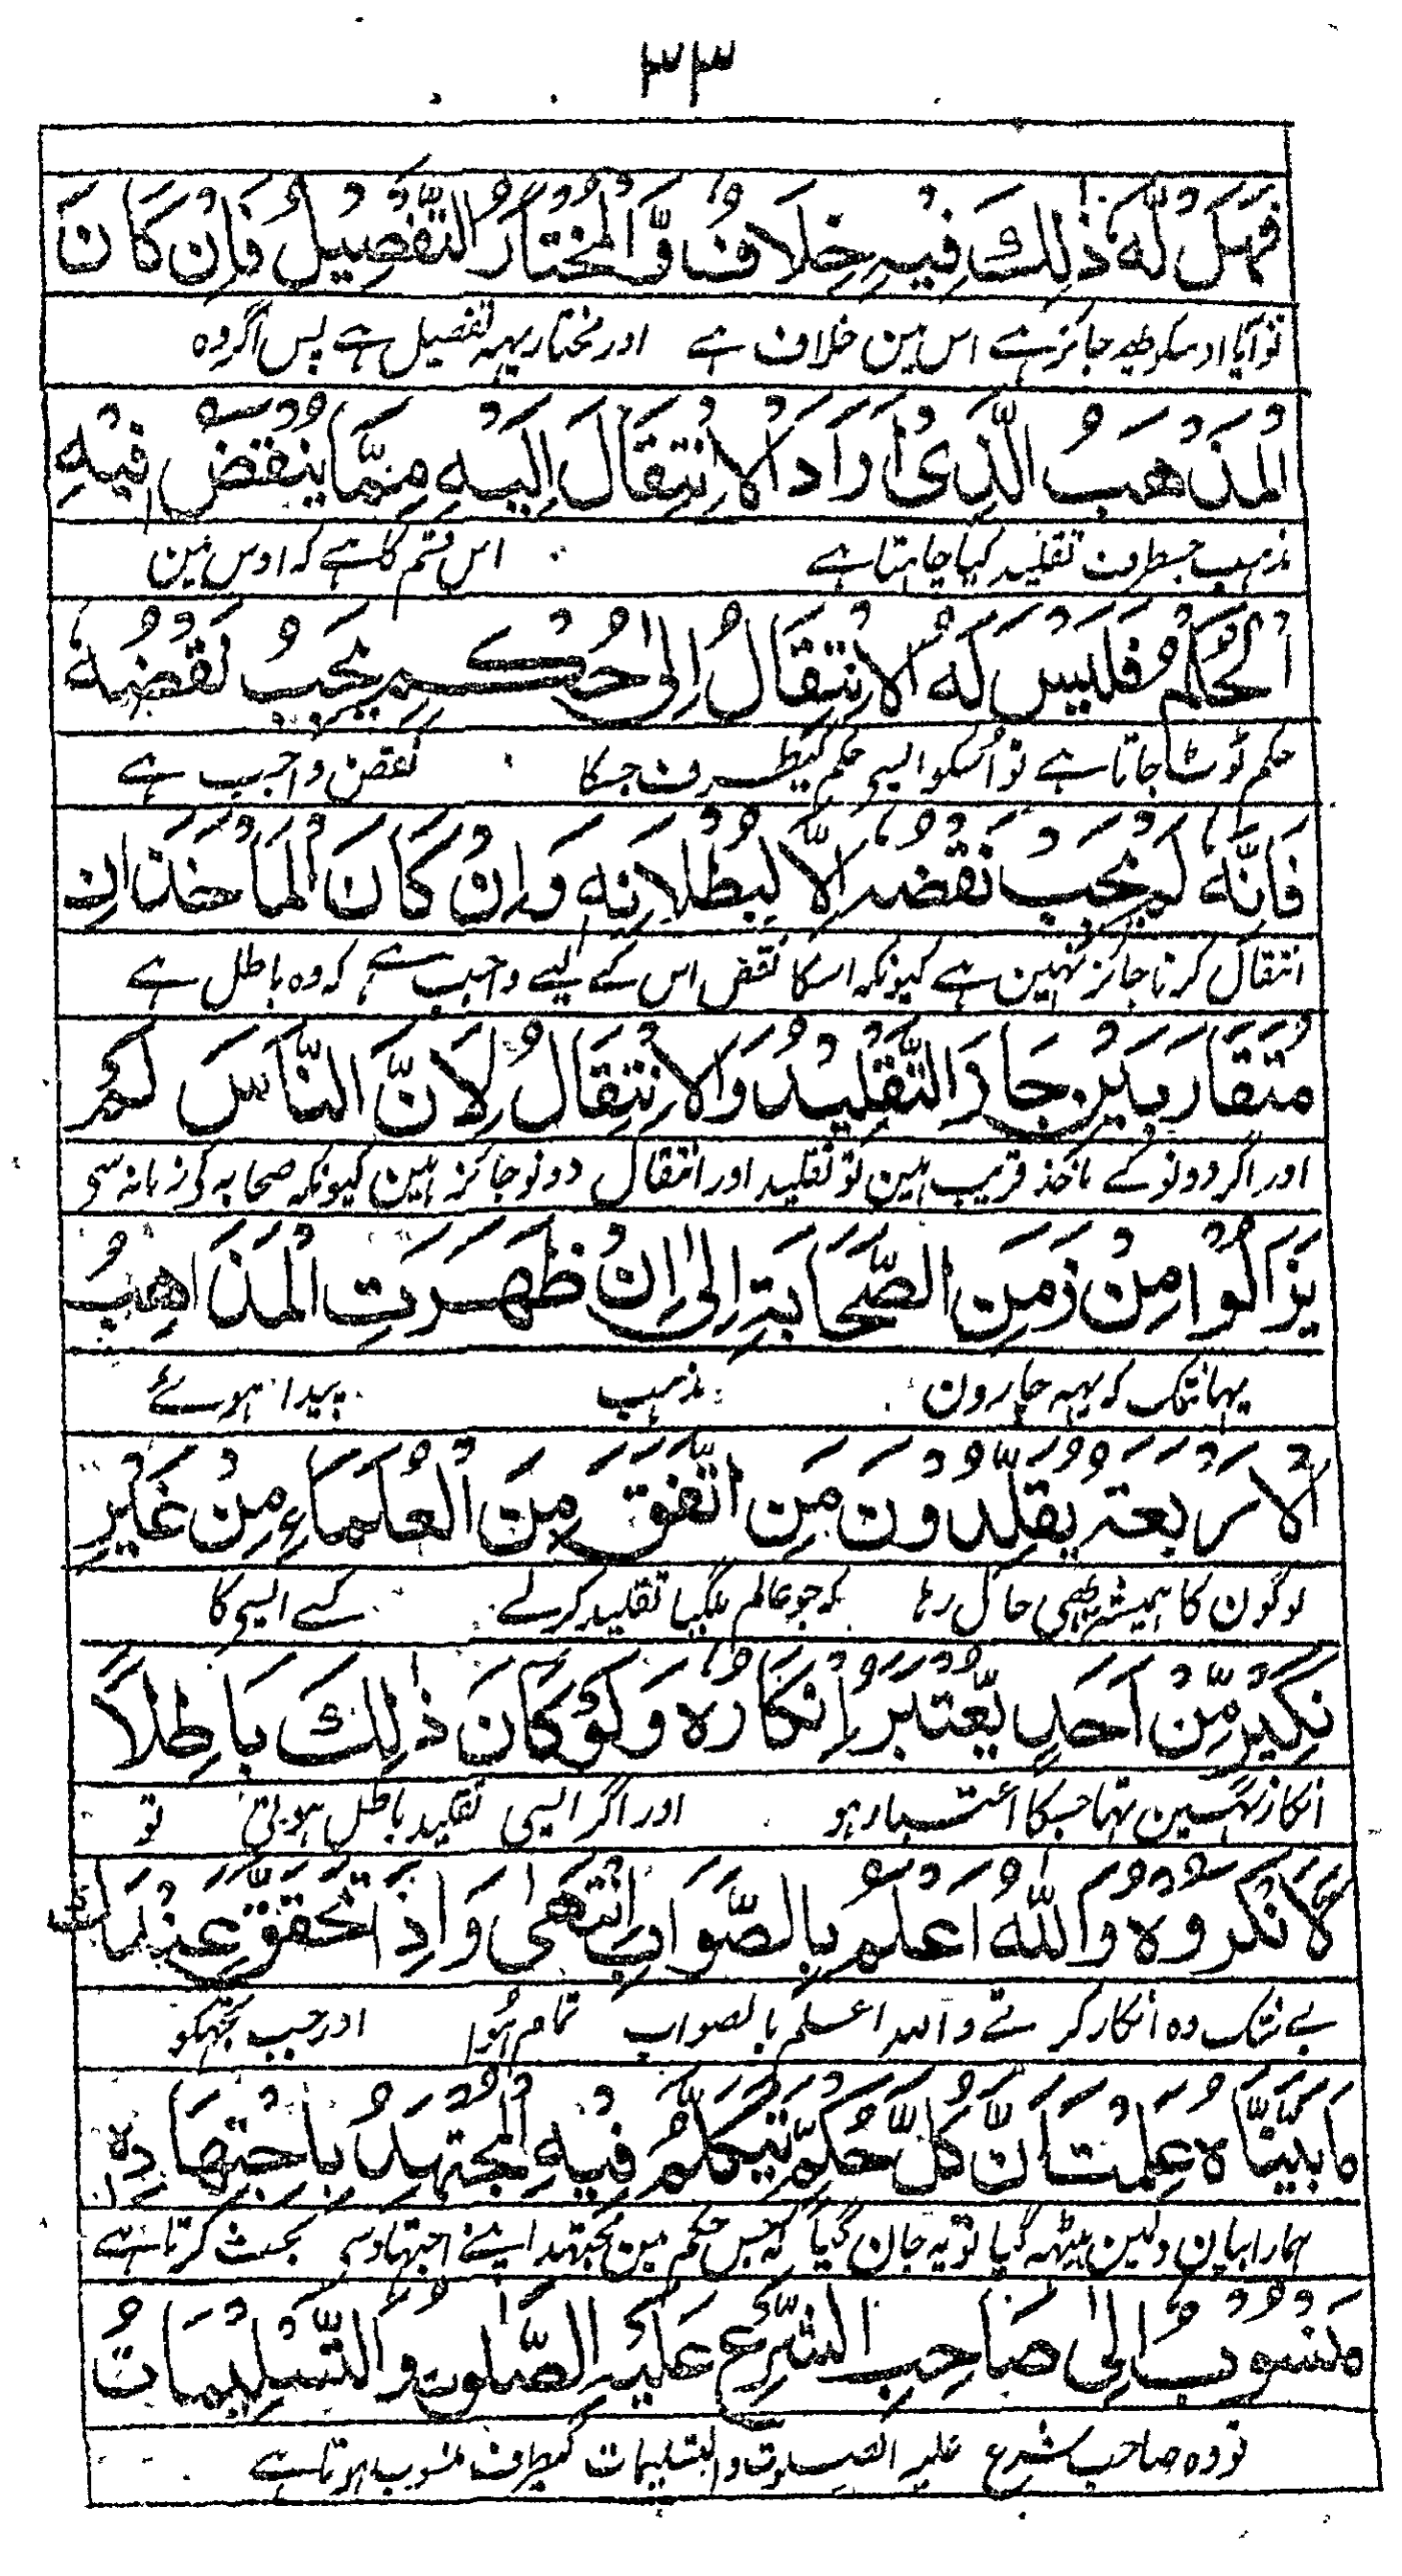 ٣٣
فَهَلْ لَّهٗ ذٰلِكَ فِيْهِ خِلَافٌ وَّالْمُخْتَارُ التَّفْصِيْلُ فَاِنْ كَانَ
تو آیا اوسکو یہہ جائز ہے اس مین خلاف ہے اور مختار یہہ تفصیل ہے پس اگر وہ
الْمَذْهَبُ الَّذِىْ اَرَادَ الْاِنْتِقَالَ اِلَيْهِ مِمَّا يُنْقَضُ فِيْهِ
مذہب جسطرف تقلید کیا چاہتا ہے اس قسم کا ہے کہ اوس مین
الْحُكْمُ فَلَيْسَ لَهُ الْاِنْتِقَالُ اِلٰى حُكْمٍ يَجِبُ نَقْضُهٗ
حکم ٹوٹ جاتا ہے تو اُسکو ایسی حکم کیطرف جسکا نقض واجب ہے
فَاِنَّهٗ لَمْ يَجِبْ نَقْضُهٗ اِلَّا لِبُطْلَانِهٖ وَاِنْ كَانَ الْمَأْخَذَانِ
انتقال کرنا جائز نہین ہے کیونکہ اسکا نقض اس کے لیے واجب ہے کہ وہ باطل ہے
مُتَقَارِبَيْنِ جَازَ التَّقْلِيْدُ وَالْاِنْتِقَالُ لِاَنَّ النَّاسَ لَمْ
اور اگر دونو کے ماخذ قریب ہین تو تقلید اور انتقال دونو جائز ہین کیونکہ صحابہ کی زمانہ سی
يَزَالُوْا مِنْ زَمَنِ الصَّحَابَةِ اِلٰى اَنْ ظَهَرَتِ الْمَذَاهِبُ
یہانتک کہ یہہ چارون مذہب پیدا ہوئے
الْاَرْبَعَةُ يُقَلِّدُوْنَ مَنِ اتَّفَقَ مِنَ الْعُلَمَاءِ مِنْ غَيْرِ
لوگون کا ہمیشہ یہی حال رہا کہ جو عالم ملگیا تقلید کرلے کسے ایسی کا
نَكِيْرٍ مِّنْ اَحَدٍ يُّعْتَبَرُ اِنْكَارُهٗ وَلَوْ كَانَ ذٰلِكَ بَاطِلًا
انکار نہین تہا جسکا اعتبار ہو اور اگر ایسی تقلید باطل ہوتی تو
لَاَنْكَرُوْهُ وَاللّٰهُ اَعْلَمُ بِالصَّوَابِ اِنْتَهٰى وَاِذَا تَحَقَّقَ عِنْدَكَ
بے شک وہ انکار کرتے واللہ اعلم بالصواب تمام ہُوا اور جب تجہکو
مَا بَيَّنَّاهُ عَلِمْتَ اَنَّ كُلَّ حُكْمٍ يَّتَكَلَّمُ فِيْهِ الْمُجْتَهِدُ بِاجْتِهَادِهٖ
ہمارا بیان دلین بیٹہہ گیا تو یہ جان گیا کہ جس حکم مین مجتہد اپنے اجتہاد سی بحث کرتا ہے
مَنْسُوْبٌ اِلٰى صَاحِبِ الشَّرْعِ عَلَيْهِ الصَّلٰوتُ وَالتَّسْلِيْمَاتُ
تو وہ صاحب شرع علیہ الصلوت والتسلیمات کیطرف منسوب ہوتا ہے